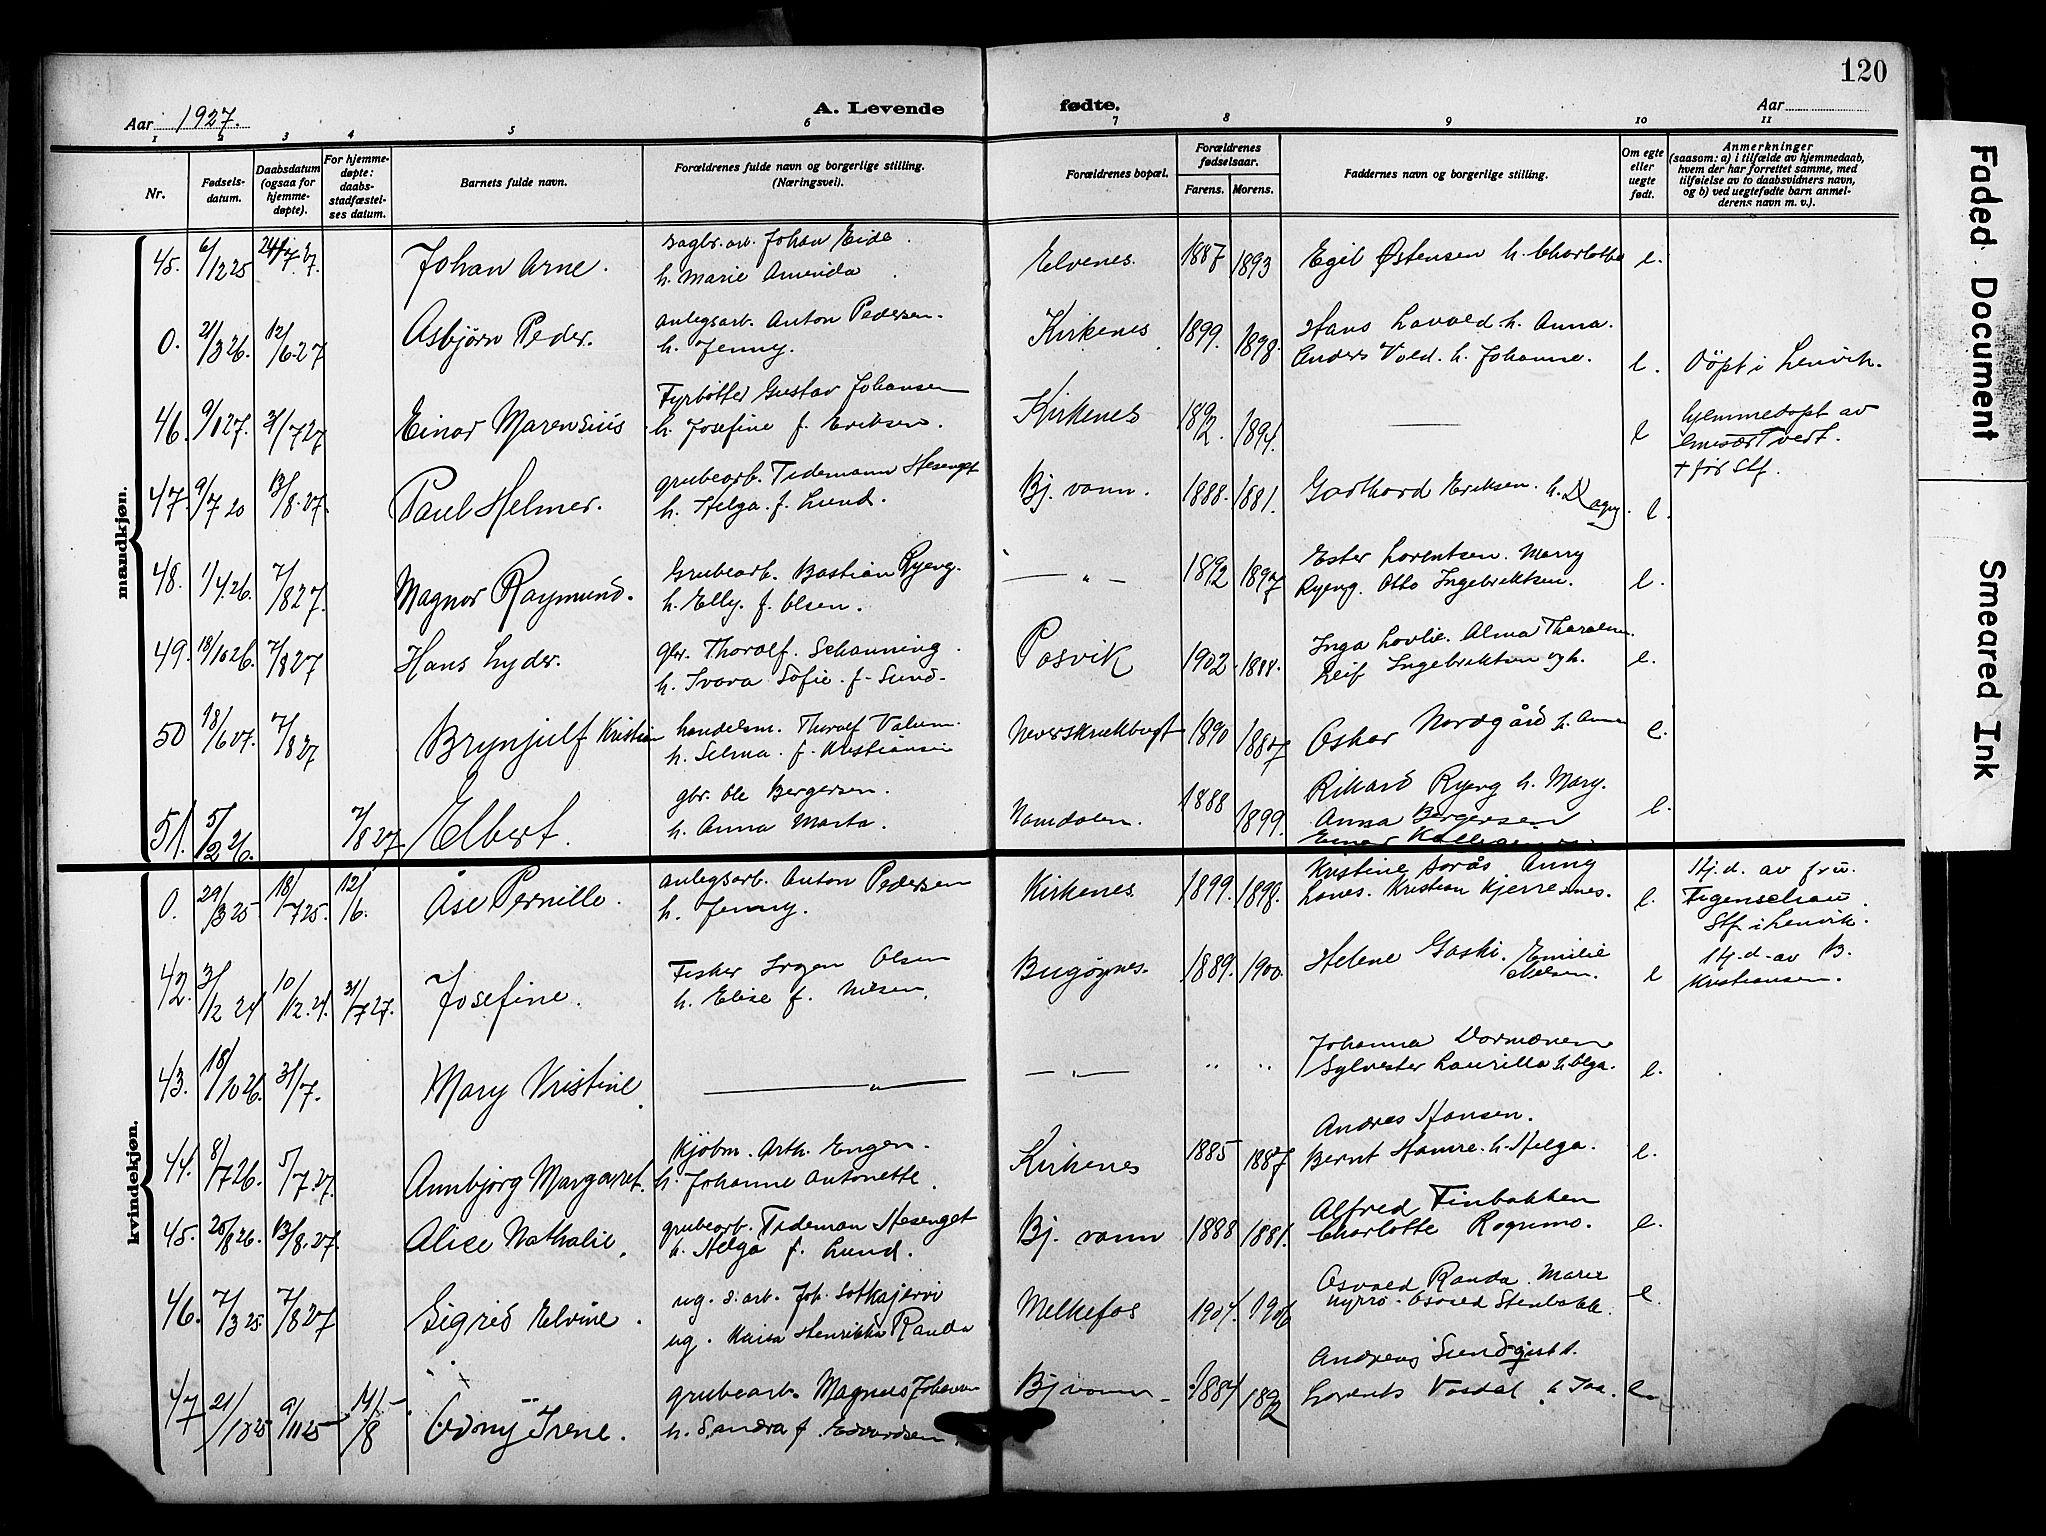 120
Aar 1927. A. Levende fødte. Aar
1 2 3 4 5 6 7 8 9 10 11
Nr.
Fødsels-
datum.
Daabsdatum
(ogsaa for
hjemme-
døpte).
For hjemme-
døpte:
daabs-
stadfæstel-
ses datum.
Barnets fulde navn.
Forældrenes fulde navn og borgerlige stilling.
(Næringsvei).
Forældrenes bopæl.
Forældrenes
fødselsaar.
Farens. Morens.
Faddernes navn og borgerlige stilling.
Om egte
eller
uegte
født.
Anmerkninger
(saasom: a) i tilfælde av hjemmedaab,
hvem der har forrettet samme, med
tilføielse av to daabsvidners navn,
og b) ved uegtefødte barn anmel-
derens navn m. v.).
mandkjøn.
45. 6/12 25 Johan Arne. sagbr. arb. Johan Eide.
h. Marie Amanda
Elvenes. 1887 1893 Egil Østensen h. Charlotte e.
0. 21/3 26. 12/6 27 Asbjørn Peder. anlegsarb. Anton Pedersen.
h. Jenny.
Kirkenes 1899. 1898. Hans Lovold. h. Anna.
Anders Vold. h. Johanne. e. Døpt i Lenvik.
46. 9/1 27. 31/7 27 Einar Marensius Fyrbøter Gustav Johansen
h. Josefine f. Eriksen.
Kirkenes 1892. 1894. — e hjemmedøpt av
emisær Tvert.
+ før Stf.
47. 9/7 20 13/8.27. Paul Helmer. grubearb. Tidemann Hesenget
h. Helga. f. Lund.
Bj. vann. 1888. 1881. Gothard Eriksen. h. Dagny. e.
48. 1/4 26. 7/8 27. Magnor Raymund. Grubearb. Bastian Ryeng.
h. Elly. f. Olsen.
— „ — 1892 1897 Ester Lorentsen. Marry
Ryeng. Otto Ingebriktsen. e.
49. 18/10 26. 7/8 27 Hans Lyder. gbr. Thoralf. Schanning.
h. Svara Sofie. f. Sund.
Pasvik 1902. 1888. Inga Lovlie. Alma Thoralsen.
Leif Ingebriktsen og h. e.
50 18/6 07. 7/8 27 Brynjulf Kristian handelsm. Thoralf Valum.
h. Selma. f. Kristiansen
1890 1887 Oskar Nordgård h. Anna e.
51. 5/2 26. 7/8 27. Elbert. gbr. Ole Bergersen.
h. Anna Marta.
Namdalen. 1888 1899. Rikard Ryeng h. Mary.
Anna Bergersen e.
kvindekjøn.
0. 29/3 25 18/7 25. 12/6. Åse Pernille. anlegsarb. Anton Pedersen
h. Jenny.
Kirkenes. 1899. 1898. Kristine Sorås. Anny
Lones. Kristian Kjerresnes. e. Hj.d. av fru.
Figenschau.
Stf. i Lenvik.
42. 31/12 24 10/12.24. 31/7 27. Josefine. Fisker Irgen Olsen
h. Elise f. Nilsen.
Bugøynes. 1889. 1900. Helene Gaski. Emilie
Nilsen. e Hj.d. av B.
Kristiansen.
43. 18/10 26. 31/7. Mary Kristine — „ —
— „ — „ „ Johanna Dormænen
Sylvester Laurilla h. Olga. e.
44. 8/7 26. 5/7.27. Annbjørg Margaret. Kjøbm. Arth. Engen.
h. Johanne Antonette.
Kirkenes 1885 1887 Andreas Hansen.
Bernt Hamre. h. Helga. e.
45. 20/8 26. 13/8.27. Alice Nathalie. grubearb. Tideman Hesenget
h. Helga f. Lund.
Bj. vann 1888 1881. Alfred Finbakken
Charlotte Rognmo. e.
46. 7/3 25. 7/8 27 Sigrid Elvine. ug. s. arb. Joh. Sotkajervi
ug. Kaisa Henrikka Randa
Melkefos 1904. 1906 Osvald Randa. Marie
Nyrro. Osvald Stenbakk. e.
47 21/10 25 9/11 25 14/8 Odny Irene. grubearb. Magnus Johansen
h. Sandra f. Edvardsen.
Bj vann 1884 1892 Andreas Sundqist.
Lorents Vasdal. h. e.
Faded Document
Smeared Ink